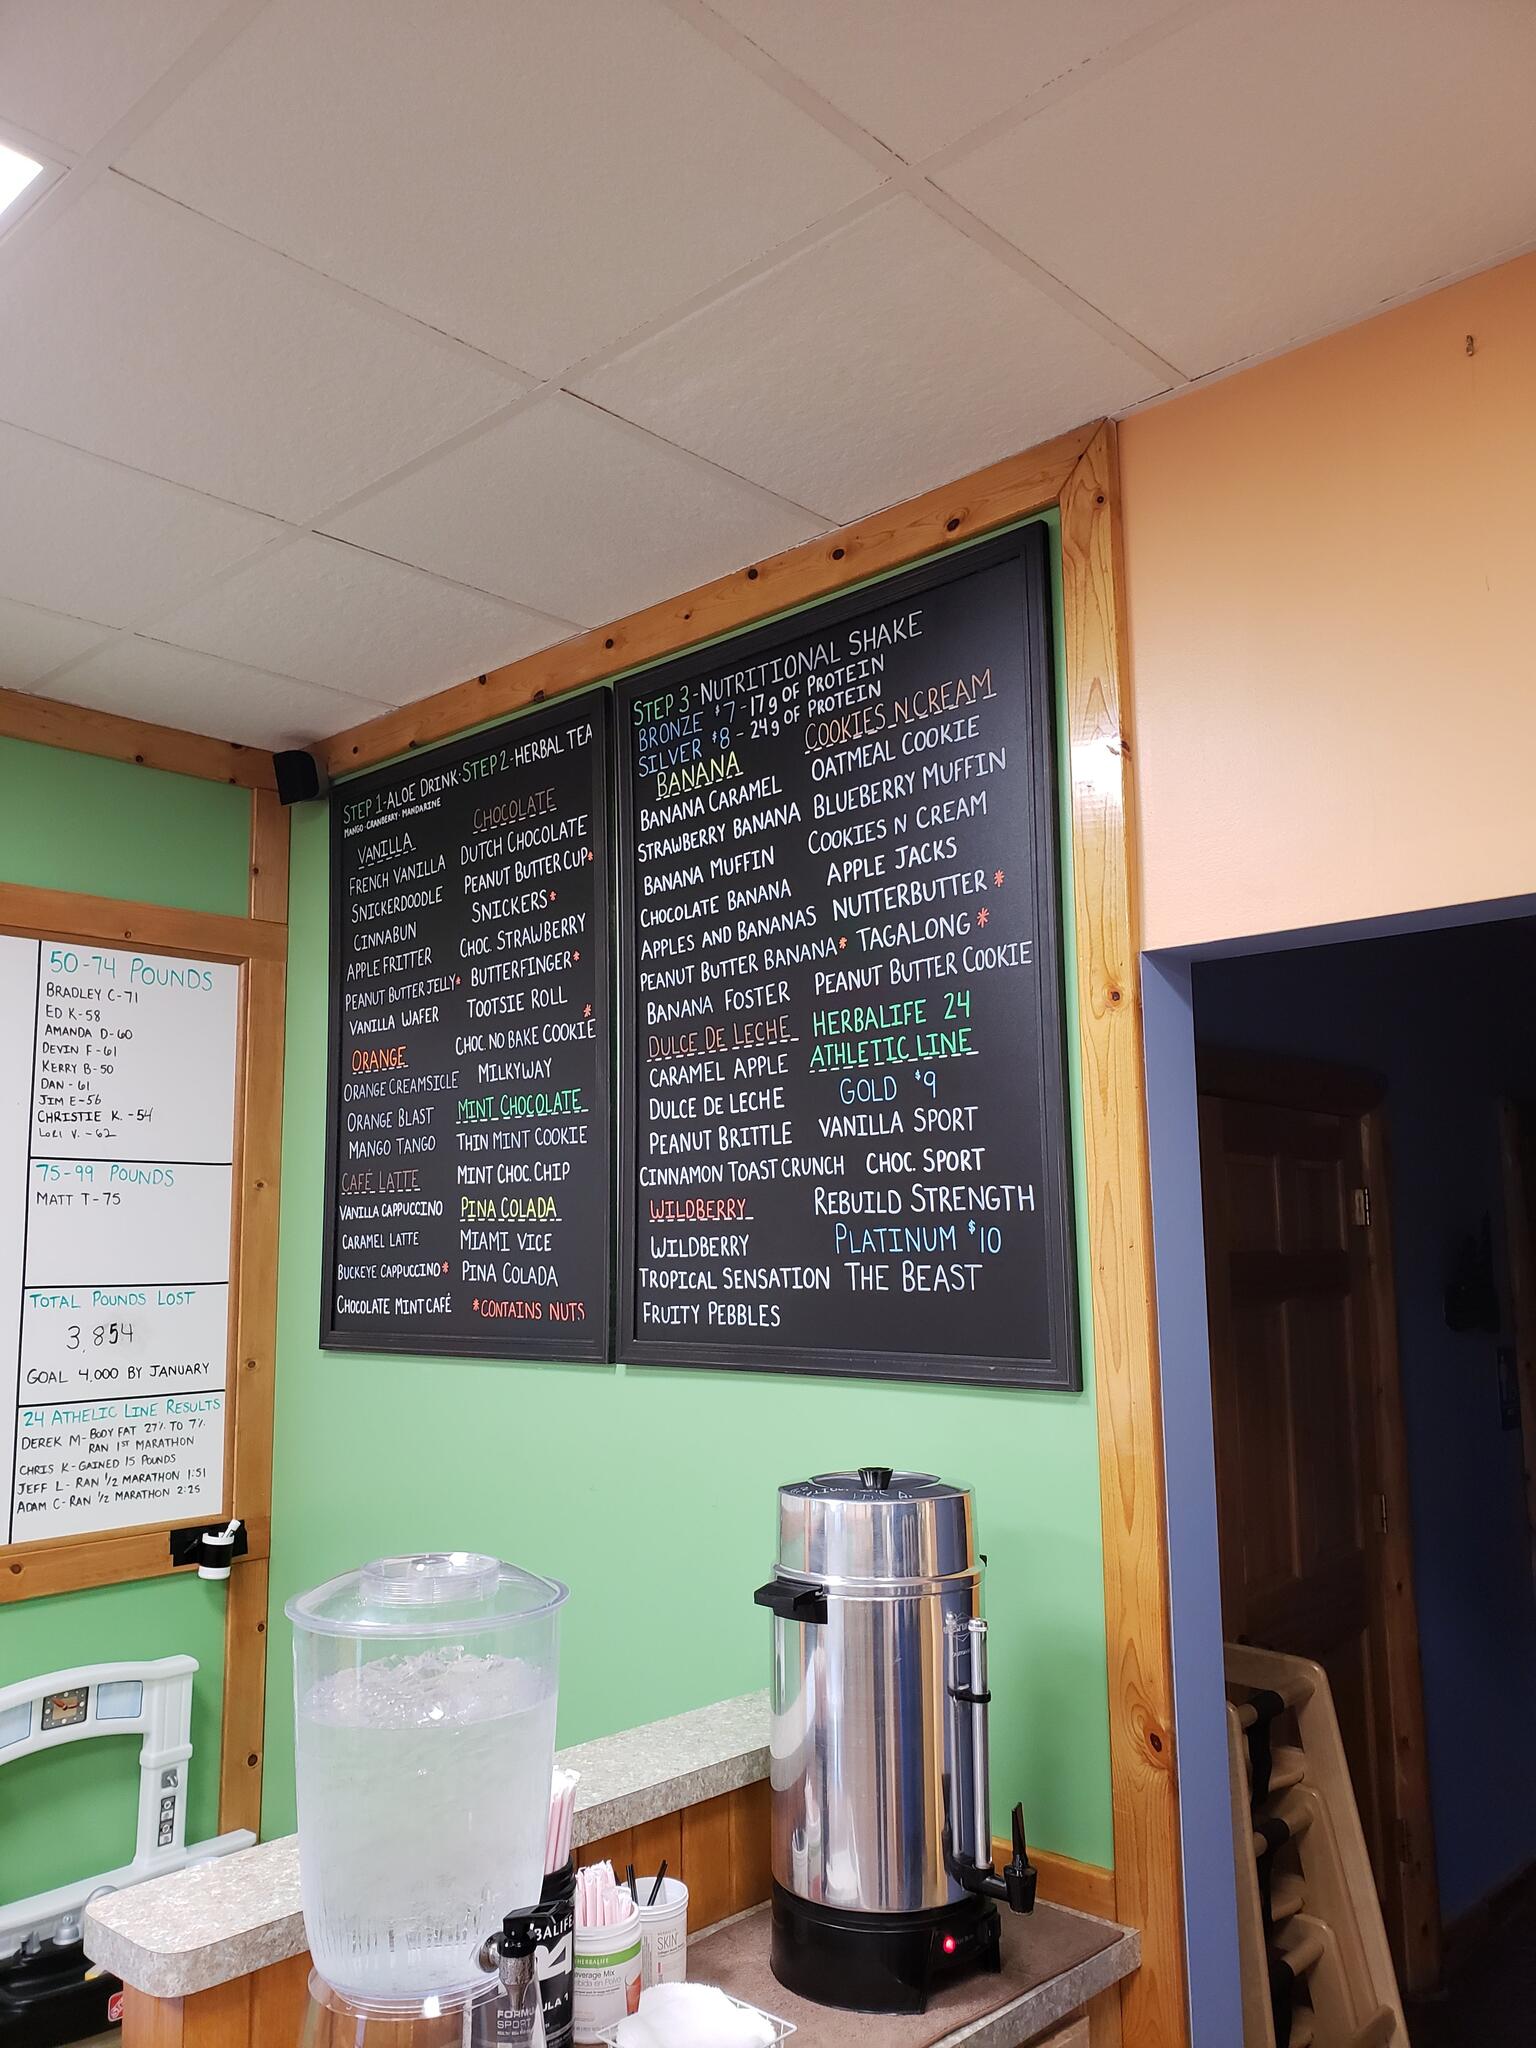 50-74 POUNDS
BRADLEY C-71
ED K-58
AMANDA D-60
DEVIN F-61
KERRY B-50
DAN-61
JIM E-56
CHRISTIE K.-54
LORI V.-62
75-99 POUNDS
MATT T-75
TOTAL POUNDS LOST
3,854
GOAL 4,000 BY JANUARY
24 ATHELIC LINE RESULTS
DEREK M-BODY FAT 27% TO 7%
RAN 1ST MARATHON
CHRIS K-GAINED 15 POUNDS
JEFF L-RAN 1/2 MARATHON 1:51
ADAM C-RAN 1/2 MARATHON 2:25
STEP 1-ALOE DRINK·STEP 2-HERBAL TEA
MANGO·CRANBERRY·MANDARINE
VANILLA
FRENCH VANILLA
SNICKERDOODLE
CINNABUN
APPLE FRITTER
PEANUT BUTTER JELLY*
VANILLA WAFER
ORANGE
ORANGE CREAMSICLE
ORANGE BLAST
MANGO TANGO
CAFÉ LATTE
VANILLA CAPPUCCINO
CARAMEL LATTE
BUCKEYE CAPPUCCINO*
CHOCOLATE MINT CAFÉ
CHOCOLATE
DUTCH CHOCOLATE
PEANUT BUTTER CUP*
SNICKERS*
CHOC. STRAWBERRY
BUTTERFINGER*
TOOTSIE ROLL
CHOC NO BAKE COOKIE*
MILKYWAY
MINT CHOCOLATE
THIN MINT COOKIE
MINT CHOC. CHIP
PINA COLADA
MIAMI VICE
PINA COLADA
*CONTAINS NUTS
STEP 3-NUTRITIONAL SHAKE
BRONZE $7-17g OF PROTEIN
SILVER $8-24g OF PROTEIN
BANANA
BANANA CARAMEL
STRAWBERRY BANANA
BANANA MUFFIN
CHOCOLATE BANANA
APPLES AND BANANAS
PEANUT BUTTER BANANA*
BANANA FOSTER
DULCE DE LECHE
CARAMEL APPLE
DULCE DE LECHE
PEANUT BRITTLE
CINNAMON TOAST CRUNCH
WILDBERRY
WILDBERRY
TROPICAL SENSATION
FRUITY PEBBLES
COOKIES N CREAM
OATMEAL COOKIE
BLUEBERRY MUFFIN
COOKIES N CREAM
APPLE JACKS
NUTTERBUTTER*
TAGALONG*
PEANUT BUTTER COOKIE
HERBALIFE 24
ATHLETIC LINE
GOLD $9
VANILLA SPORT
CHOC. SPORT
REBUILD STRENGTH
PLATINUM $10
THE BEAST
FORMULA 1
SPORT
HERBALIFE
SKIN